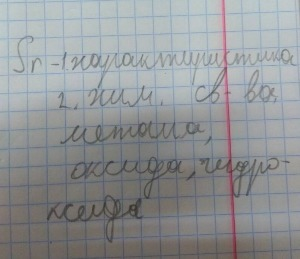 Sr - 1. характеристика
2. хим. св-ва
метала,
оксида, гидро-
ксида